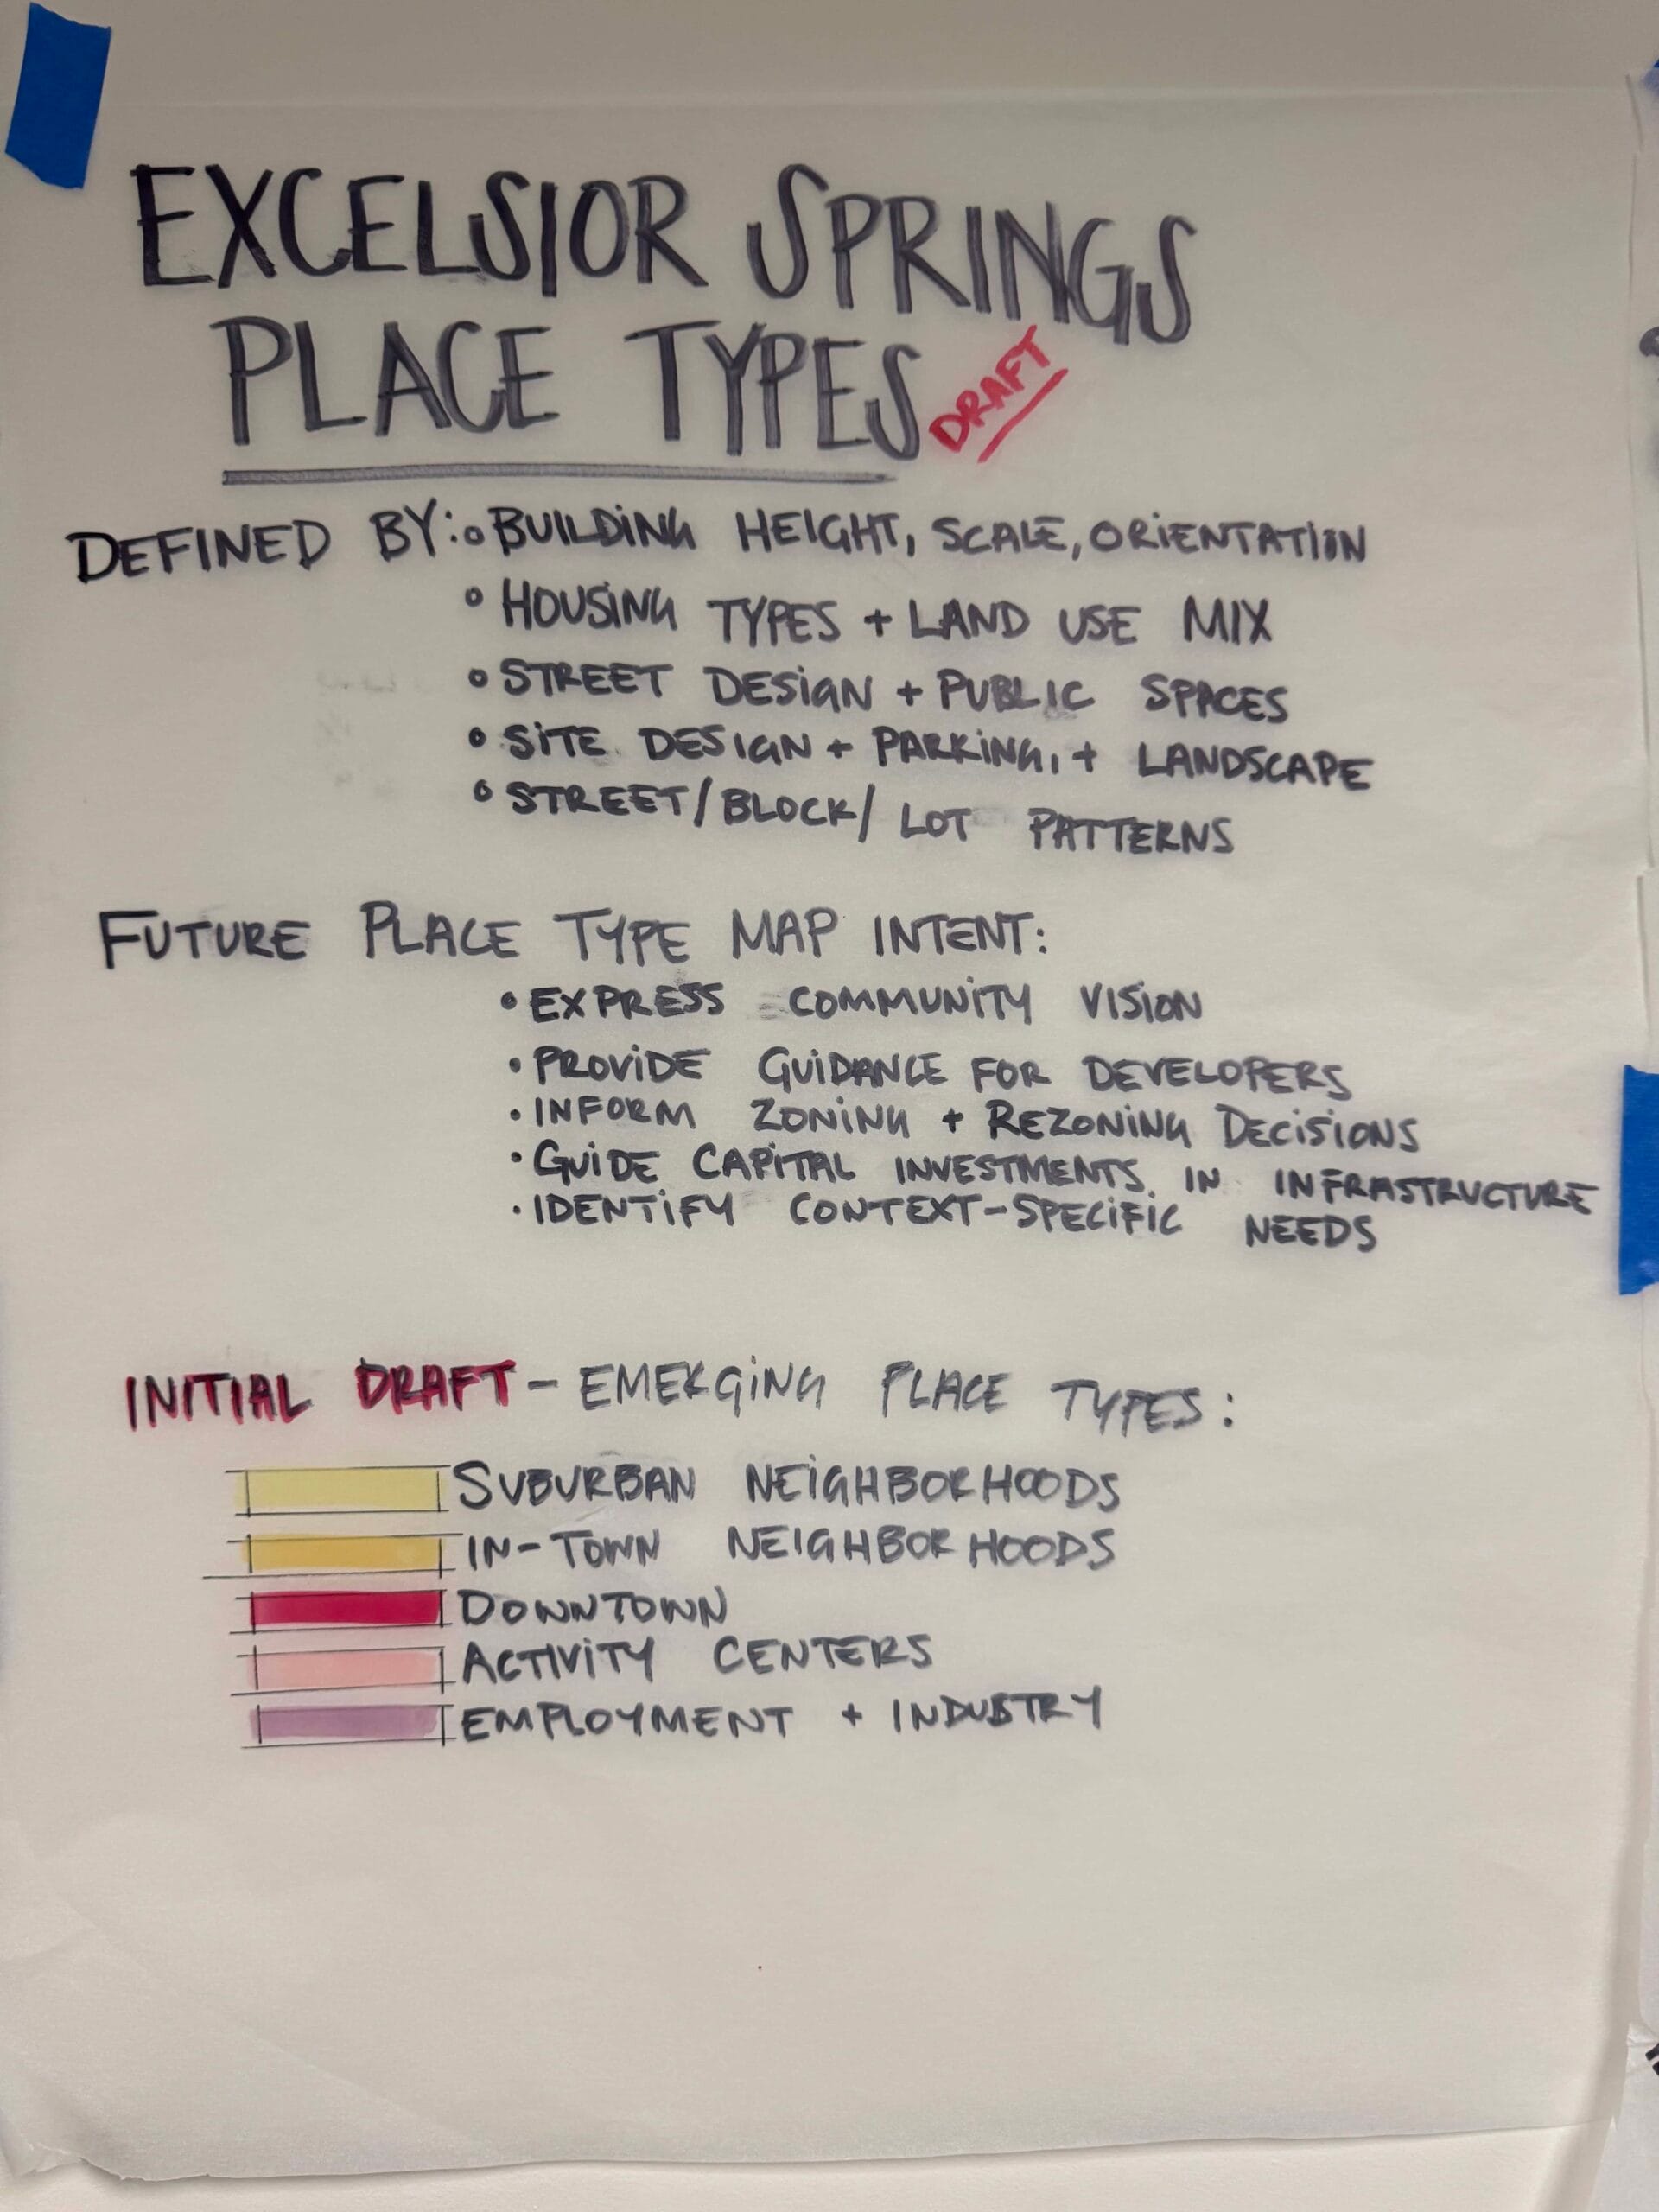 EXCELSIOR SPRINGS
PLACE TYPES DRAFT
DEFINED BY: ∘ BUILDING HEIGHT, SCALE, ORIENTATION
∘ HOUSING TYPES + LAND USE MIX
∘ STREET DESIGN + PUBLIC SPACES
∘ SITE DESIGN + PARKING, + LANDSCAPE
∘ STREET/BLOCK/LOT PATTERNS
FUTURE PLACE TYPE MAP INTENT:
• EXPRESS COMMUNITY VISION
• PROVIDE GUIDANCE FOR DEVELOPERS
• INFORM ZONING + REZONING DECISIONS
• GUIDE CAPITAL INVESTMENTS IN INFRASTRUCTURE
• IDENTIFY CONTEXT-SPECIFIC NEEDS
INITIAL DRAFT - EMERGING PLACE TYPES:
SUBURBAN NEIGHBORHOODS
IN-TOWN NEIGHBORHOODS
DOWNTOWN
ACTIVITY CENTERS
EMPLOYMENT + INDUSTRY